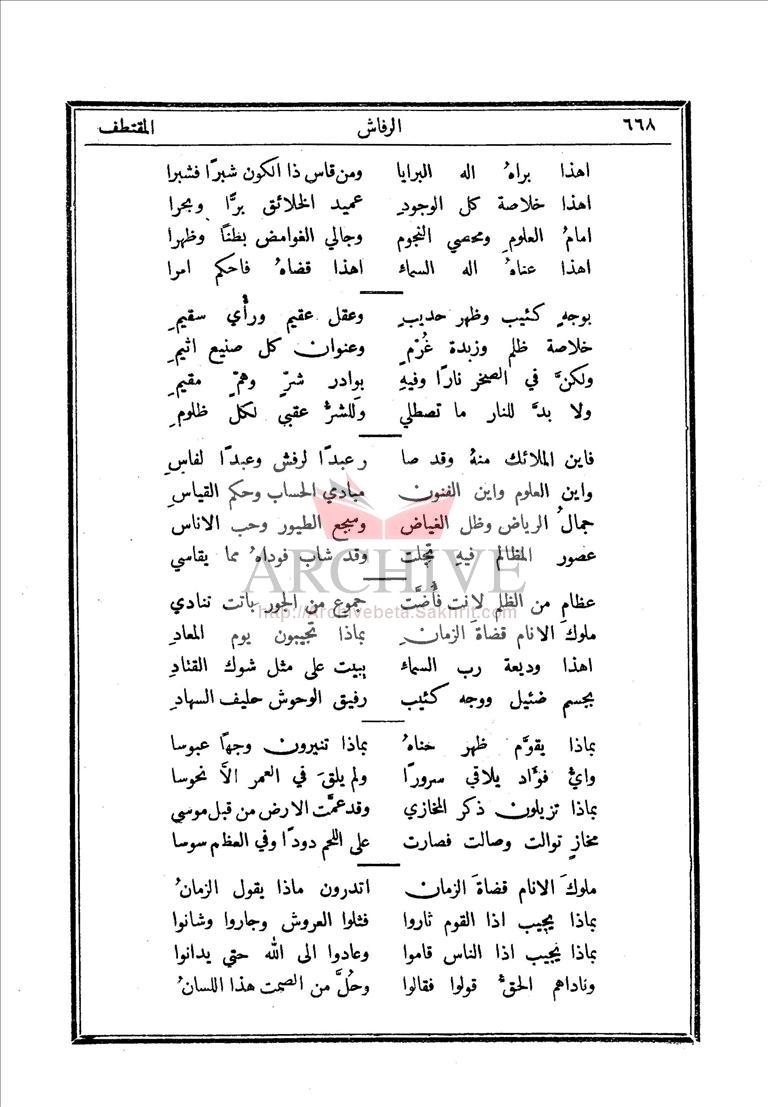 ٦٦٨ الرفاش المقتطف
اهذا براهُ اله البرايا ومن قاس ذا الكون شبرًا فشبرا
اهذا خلاصة كل الوجودِ عميد الخلائق برًّا وبحرا
امامُ العلومِ ومحصي النجوم وجالي الغوامض بطنًا وظهرا
اهذا عناهُ اله السماء اهذا قضاهُ فاحكم امرا
بوجهٍ كئيب وظهر حديبٍ وعقل عقيم ورأي سقيمِ
خلاصة ظلم وزبدة غُرْمٍ وعنوان كل صنيع اثيمِ
ولكنَّ في الصخر نارًا وفيهِ بوادر شرّ وهمّ مقيمِ
ولا بدَّ للنار ما تصطلي وللشرّ عقبى لكل ظلومِ
فاين الملائك منهُ وقد صا رعبدًا لرفش وعبدًا لفاسِ
واين العلوم واين الفنون مبادي الحساب وحكم القياسِ
جمالُ الرياض وظل الغياض وسجع الطيور وحب الاناس
عصور المظالم فيهِ تجلت وقد شاب فوداهُ مما يقاسي
ARCHIVE
عظام من الظلم لانت فأَضَّت جموع من الجور باتت تنادي
http://Archivebeta.Sakhrit.com
ملوكَ الانام قضاةَ الزمانِ بماذا تجيبون يوم المعادِ
اهذا وديعة رب السماء يبيت على مثل شوك القتادِ
بجسم ضئيل ووجه كئيب رفيق الوحوش حليف السهادِ
بماذا يقوَّم ظهر حناهُ بماذا تنيرون وجهًا عبوسا
وايُّ فوَّاد يلاقي سرورًا ولم يلقَ في العمر الاَّ نحوسا
بماذا تزيلون ذكر المخازي وقد عمَّت الارض من قبل موسى
مخازٍ توالت وصالت فصارت على اللحم دودًا وفي العظم سوسا
ملوكَ الانام قضاةَ الزمان اتدرون ماذا يقول الزمانُ
بماذا يجيب اذا القوم ثاروا فثلوا العروش وجاروا وشانوا
بماذا يجيب اذا الناس قاموا وعادوا الى الله حتى يدانوا
وناداهم الحقُّ قولوا فقالوا وحُلَّ من الصمت هذا اللسانُ